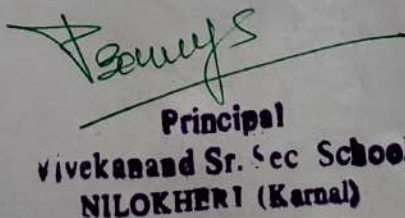 Principal
Vivekanand Sr. Sec School
NILOKHERI (Karnal)